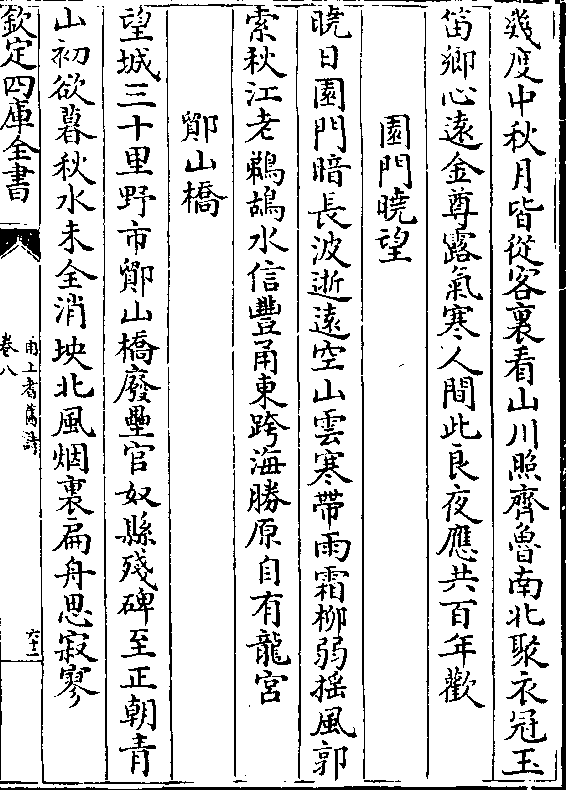 幾度中秋月皆從客裏看山川照齊魯南北聚衣冠玉
笛鄉心遠金尊露氣寒人間此良夜應共百年歡
園門曉望
曉日園門暗長波逝遠空山雲寒帶雨霜柳弱揺風郭
索秋江老鵜鴣水信豐甬東跨海勝原自有龍宮
鄮山橋
望城三十里野市鄮山橋廢壘官奴縣殘碑至正朝青
山初欲暮秋水未全消坱北風烟裏扁舟思寂寥
欽定四庫全書
甬上耆舊詩
卷八